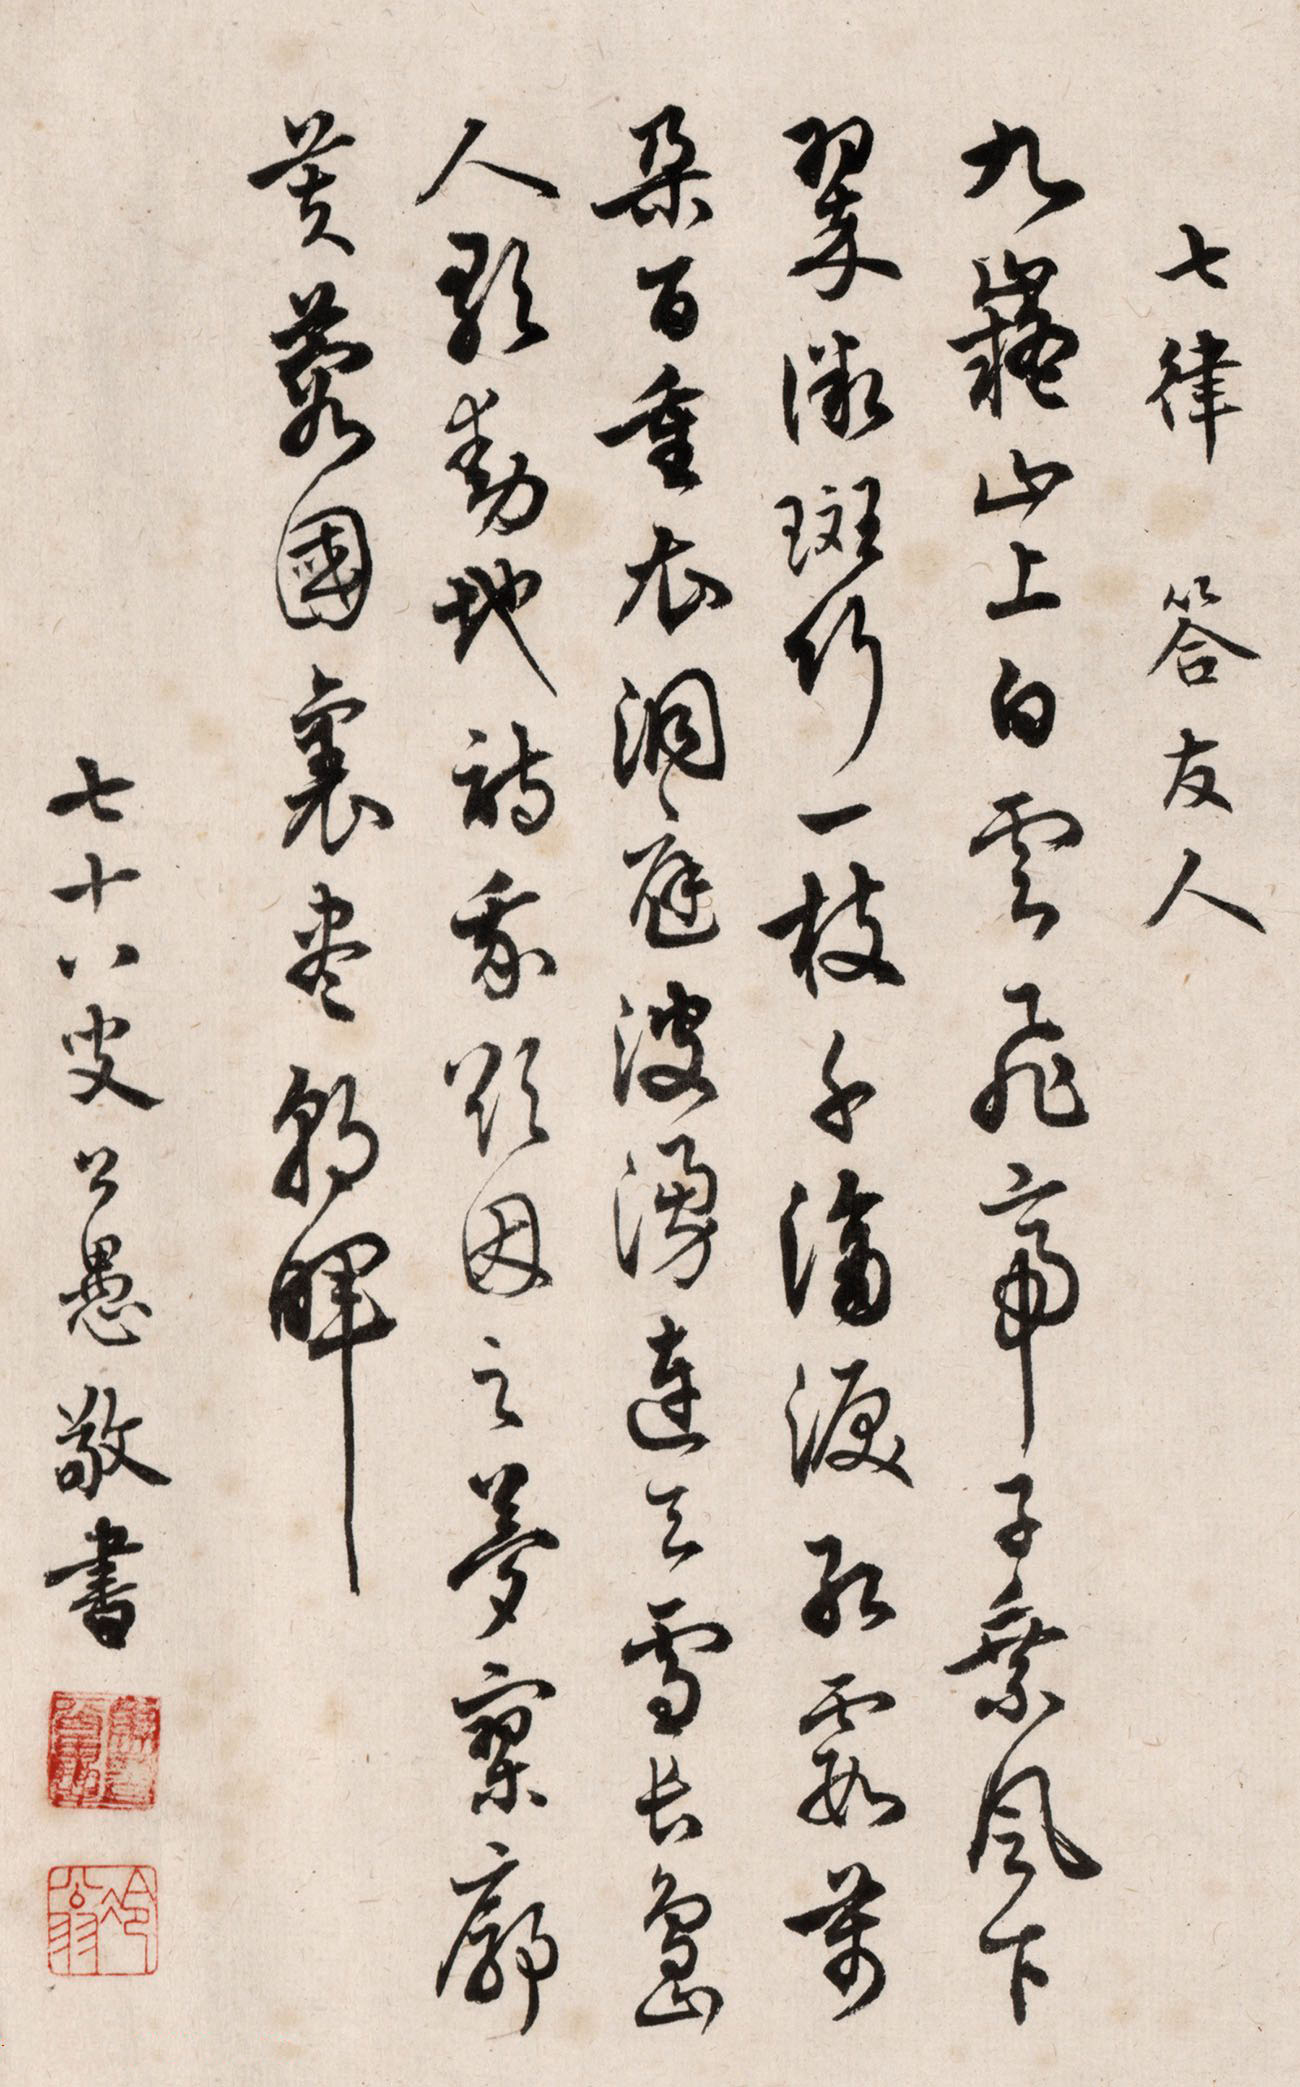 七律 答友人
九嶷山上白雲飛帝子乘風下
翠微斑竹一枝千滴淚紅霞萬
朶百重衣洞庭波湧連天雪長島
人歌動地詩我欲因之夢寥廓
芙蓉國裏盡朝暉
七十八叟公愚敬書
冷公翁